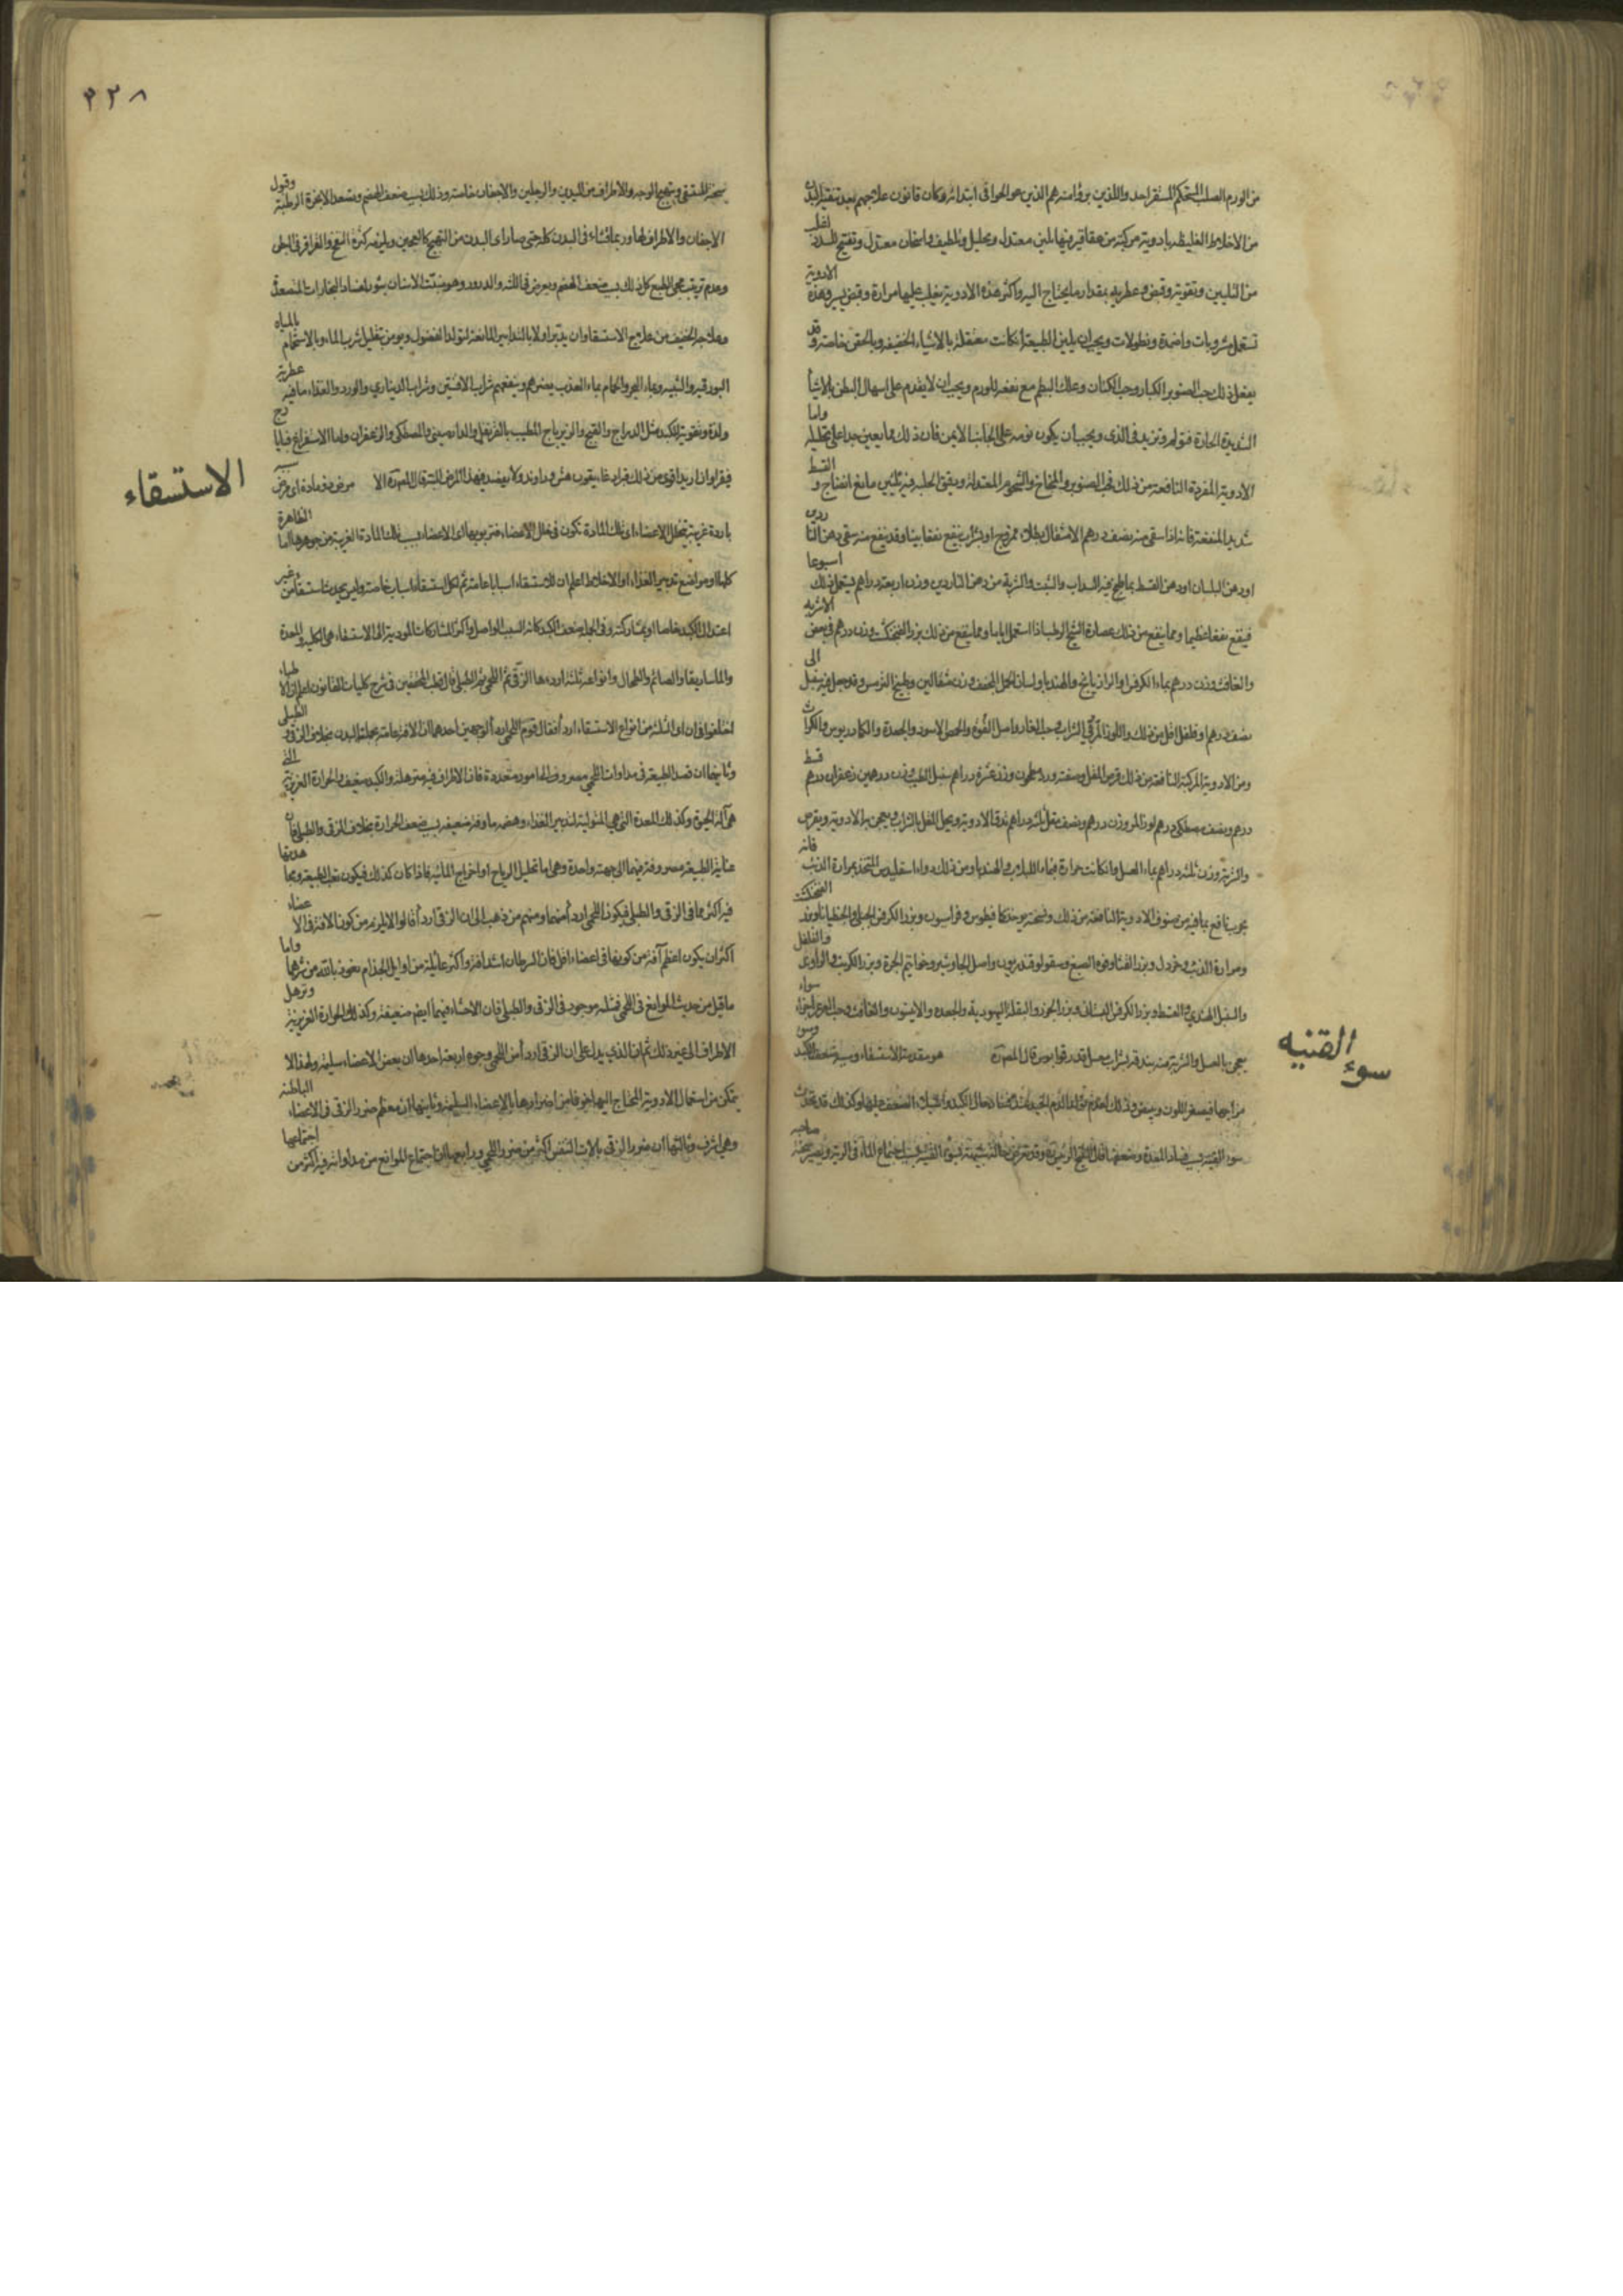 من الورم الصلب المستحكم المستقر احد واللذين برؤا منه هم الذين عولجوا في ابتدائه وكان قانون علاجهم بعد تنقية البدن
من الاخلاط الغليظة بادوية مركبة من عقاقير فيها تليين معتدل وتحليل وتلطيف واسخان معتدل وتفتيح للسدد
من التليين وتقوية وقبض وعطرية بقدار ما يحتاج اليه واكثر هذه الادوية يغلب عليها مرارة وقبض يسير وهذه الادوية
تستعمل مشروبات واضمدة ونطولات ويجب ان يلين الطبيعة ان كانت معتقلة بالاشياء الخفيفة وبالحقن خاصة وقد
يفعل ذلك حب الصنوبر الكبار وحب الكتان وعلك البطم مع نفعه للورم ويجب ان لا يقدم على اسهال البطن بالاشياء
الشديدة الحارة فيؤلم وتزيد في الاذى ويجب ان يكون نومه على الجانب الايمن فان ذلك مما يعين جدا على تحليله واما
الادوية المفردة النافعة من ذلك فحب الصنوبر والمخاخ والشحوم المعتدلة ودقيق الحلبة فيه تليين مابلغ انضاج والقسط
شديد المنفعة فانه اذا سقى منه نصف درهم الى مثقال بطلاء ممزوج او بشراب ينفع نفعا بينا وقد ينفع منه سقى دهن الناردين
او دهن البلسان او دهن القسط بماء طبخ فيه السداب والشبت والشربة من دهن الناردين وزن اربعة دراهم يستعمل ذلك اسبوعا
فينفع نفعا عظيما ومما ينفع من ذلك عصارة الشيح الرطب اذا استعمل اياما ومما ينفع من ذلك بزر الفنجنكشت وزن درهم في بعض الاشربة
والغافث وزن درهم بماء الكرفس او الرازيانج والهندبا ولسان الحمل المجفف وزن مثقالين وطبيخ الترمس وقد جعل فيه سنبل الى
نصف درهم او فلفل اقل من ذلك واللوز المر في الشراب وحب الغار واصل الفوة والحمص الاسود والجعدة والكمادريوس والكرات
ومن الادوية المركبة النافعة من ذلك قرص المقل وصفته ورد مطحون وزن عشرة دراهم سنبل الطيب وزن درهمين زعفران درهم قسط
درهم ونصف مصطكى درهم لوز المر وزن درهم ونصف مقل ثلثة دراهم تدق الادوية ويحل المقل بالشراب ويعجن به الادوية ويقرص
والشربة وزن ثلثة دراهم بماء العسل وان كانت حرارة فبماء اللبلاب والهندبا ومن ذلك دواء اسقليدس المتخذ بمرارة الدب فانه
مجرب نافع بما فيه من صنوف الادوية النافعة من ذلك ونسخته يؤخذ كمافيطوس وفراسيون وبزر الكرفس الجبلي والجنطيانا وبزر الفنجنكشت
ومرارة الدب وخردل وبزر القثاء وفوة الصبغ وسقولوقندريون واصل الجاوشير وخواتيم البحرة وبزر الكرنب والراوند والفلفل
والسنبل الهندي والقسط وبزر الكرفس البستاني وبزر الجزر والبقلة اليهودية والجعدة والافيون والغافث وحب العرعر اجزاء سواء
يعجن بالعسل والشربة منه بندقة بشراب معسل قدر قوابوس قال المصنف هو مقدمة الاستسقاء وسببه ضعف الكبد وسوء
مزاجها فيصفر اللون ويبيض وذلك لعدم تولد الدم الجيد
سوء القنية بسبب فساد المعدة وضعفها
سوء القنيه
٣٢٨
سحنة المستسقى ويتهيج الوجه والاطراف من اليدين والرجلين والاجفان خاصة وذلك بسبب ضعف الهضم وتصعد الابخرة الرطبة وقبول
الاجفان والاطراف لها وربما فشاء في البدن كله حتى صار اى البدن من التهيج كالعجين ويلزمه كثرة النفخ والقراقر في البطن
وعدم ترتيب مجى الطبع كل ذلك بسبب ضعف الهضم ويعرض في اللثة والدرور وهو منبت الاسنان بثور لفساد البخارات المتصعدة
وعلاجه الخفيف من علاج الاستسقاء وان يدبر اولا بالتدابير المانعة لتولد الفضول ويؤمر بتقليل شرب الماء وبالاستحمام بالمياه
البورقية والشبية وبماء البحر والحمام بماء العذب يضرهم وينفعهم شراب الافسنتين وشراب الديناري والورد والغذاء ما فيه عطرية
ولذة وتقوية للكبد مثل الدراج والقبج والزيرباج المطيب بالقرنفل والدارصيني والمصطكى والزعفران واما الاستفراغ فبايارج
فيقرا وان اريد اقوى من ذلك فزاد غاريقون هش وراوند ولا يفصد في هذا المرض البتة قال المصنف الاستسقاء مرض ذو مادة اى مرض
باردة غريبة تتخلل الاعضاء اى تلك المادة تكون في خلل الاعضاء فتربو بها اى الاعضاء بسبب تلك المادة الغريبة من جوهرها اما الظاهرة
كلها او مواضع تدبير الغذاء والاخلاط اعلم ان للاستسقاء اسبابا عامة ثم لكل استسقاء اسباب خاصة وليس يحدث استسقاء من غير
اعتدال الكبد خاصا او بمشاركة وفي الجملة ضعف الكبد كانه السبب الواصل واكثر المشاركات المؤدية الى الاستسقاء هي الكلية والمعدة
والماساريقا والصائم والطحال وانواعه ثلثة اردءها الزقي ثم اللحمي ثم الطبلي قال قطب المحققين في شرح كليات القانون اعلم ان الاطباء
اختلفوا في ان اى الثلثة من انواع الاستسقاء اردأ فقال قوم اللحمي اردأ لوجهين احدهما ان الافة عامة بجملة البدن بخلاف الزقي والطبلي
وثانيهما ان قصد الطبيعة في مداوات اللحمي مصروف الى امور متعددة فان الاطراف فيه مترهلة والكبد ضعيف والحرارة الغريزية التي
هى آلة الحيوة وكذلك المعدة التي هي المتولية لتدبير الغذاء وهضمه ماوفة ضعيفة بسبب ضعف الحرارة بخلاف الزقي والطبلي فان
عناية الطبيعة مصروفة فيهما الى جهة واحدة وهى اما تحليل الرياح او اخراج المائية فاذا كان كذلك فيكون تعب الطبيعة ومجاهدتها
فيه اكثر مما في الزقي والطبلي فيكون اللحمي اردأ منهما ومنهم من ذهب الى ان الزقي اردأ قالوا لا يلزم من كون الافة في الاعضاء
اكثر ان يكون اعظم آفة من كونها في اعضاء اقل فان السرطان اشد افة واكثر غائلة من اوايل الجذام نعوذ بالله من شرهما واما
ما قيل من حديث الموانع في اللحمي فمثله موجود في الزقي والطبلي فان الاحشاء فيهما ايضا ضعيفة وكذلك الحرارة الغريزية وترهل
الاطراف الى غير ذلك ثم ان الذي يدل على ان الزقي اردأ من اللحمي وجوه اربعة احدها ان بعض الاعضاء سليمة ولهذا لا
يتمكن من استعمال الادوية المحتاج اليها خوفا من اضرارها بالاعضاء السليمة وثانيها ان معظم ضرر الزقي في الاعضاء الباطنة
وهى اشرف وثالثها ان ضرر الزقي بالات التنفس اكثر من ضرر اللحمي ورابعها ان اجتماع الموانع من مداواته فيه اكثر من اجتماعها
الاستسقاء